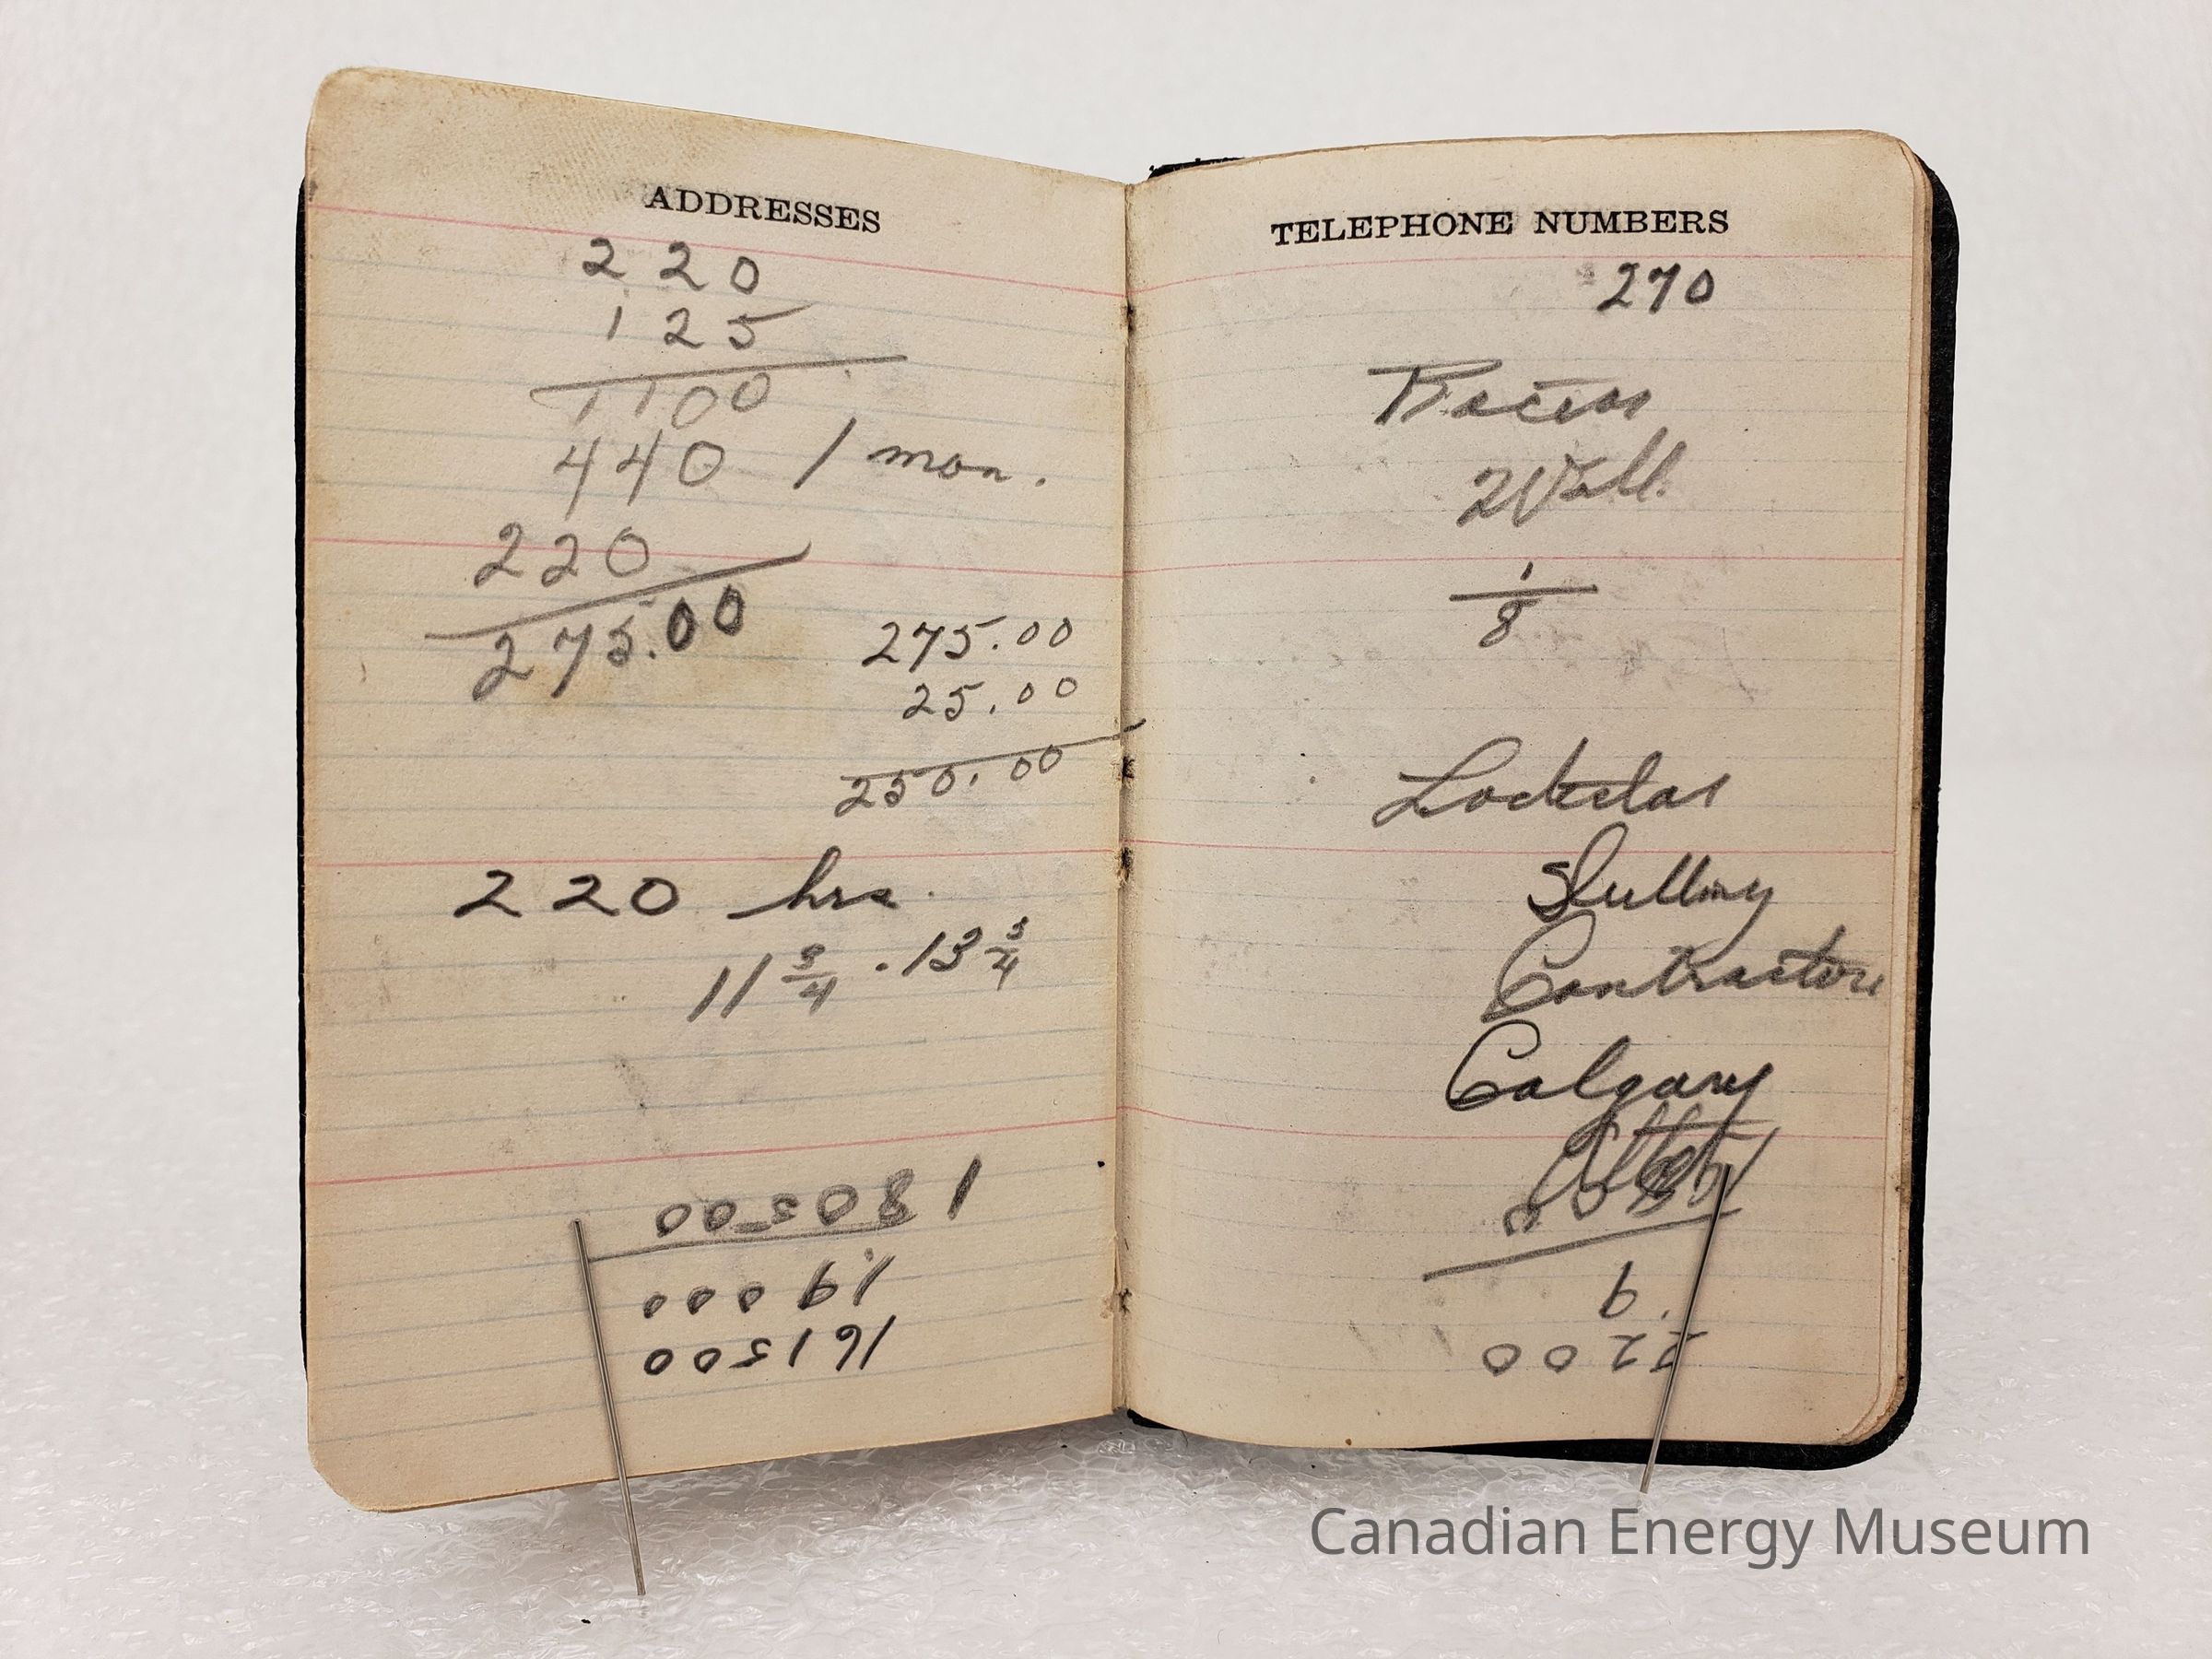 ADDRESSES
220
125
1100
440 1 mon.
220
275.00
275.00
25.00
250.00
220 hrs.
11 3/4 . 13 3/4
180500
19000
161500
TELEPHONE NUMBERS
270
1/8
Contractors
Calgary
9
2200
Canadian Energy Museum